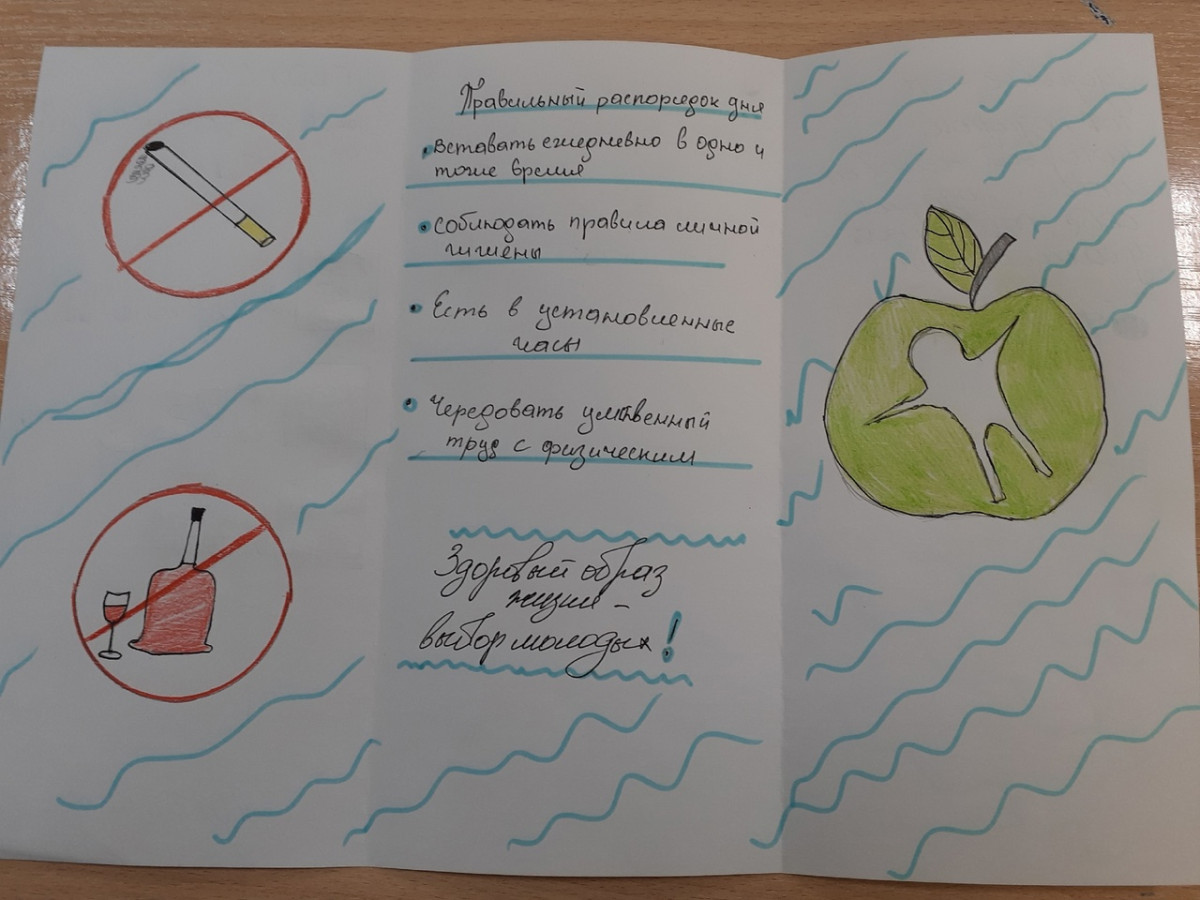 Правильный распорядок дня
• вставать ежедневно в одно и
тоже время
• соблюдать правила личной
гигиены
• Есть в установленные
часы
• Чередовать умственный
труд с физическим
Здоровый образ
жизни -
выбор молодых!